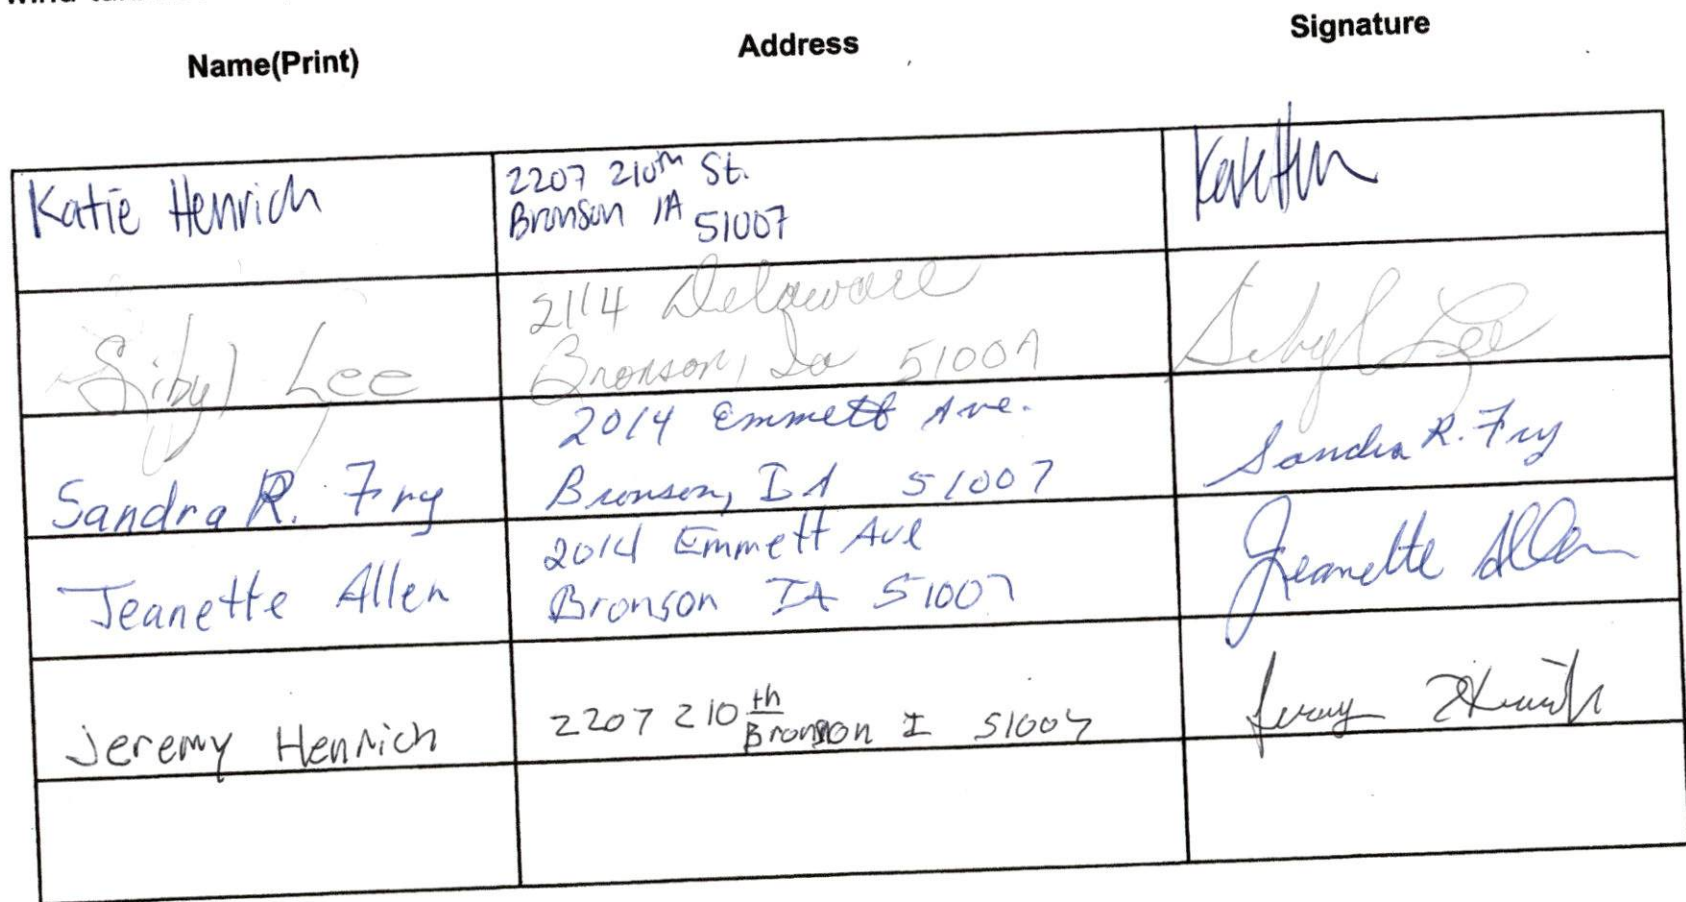 Name(Print) Address Signature
Katie Henrich
2207 210th St.
Bronson IA
51007
Sibyl Lee
2114 Delaware
Bronson, Ia 51007
Sibyl Lee
Sandra R. Fry
2014 Emmett Ave.
Bronson, IA 51007
Sandra R. Fry
Jeanette Allen
2014 Emmett Ave
Bronson IA 51007
Jeanette Allen
Jeremy Henrich
2207 210th
Bronson I 51007